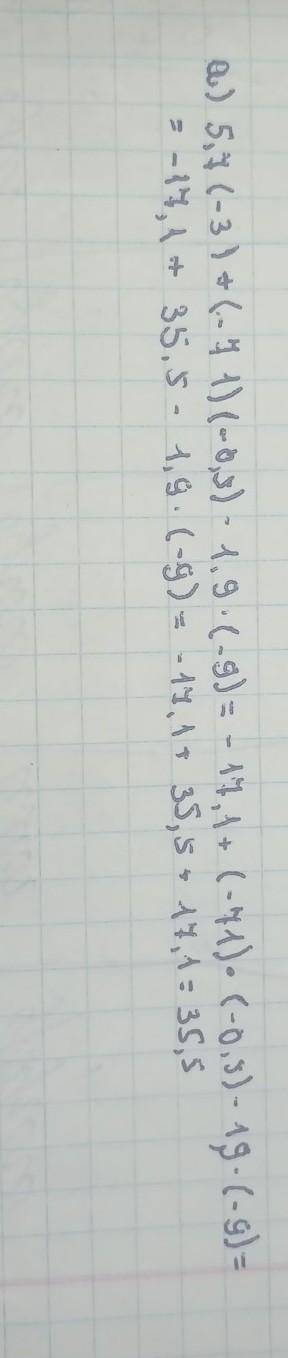 а) 5,7(-3)+(-71)(-0,5)-1,9·(-9)= -17,1+(-71)·(-0,5)-1,9·(-9)=
= -17,1+ 35,5- 1,9·(-9)= -17,1+ 35,5+17,1=35,5